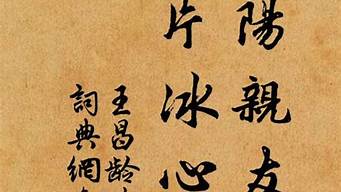 陽親友
片冰心
王昌龄
詞典網